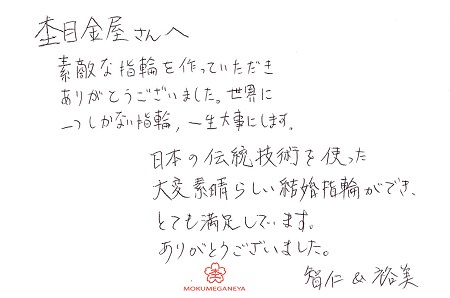 杢目金屋さんへ
素敵な指輪を作っていただき
ありがとうございました。世界に
一つしかない指輪，一生大事にします。
日本の伝統技術を使った
大変素晴らしい結婚指輪ができ、
とても満足しています。
ありがとうございました。
智仁 & 裕美
MOKUMEGANEYA